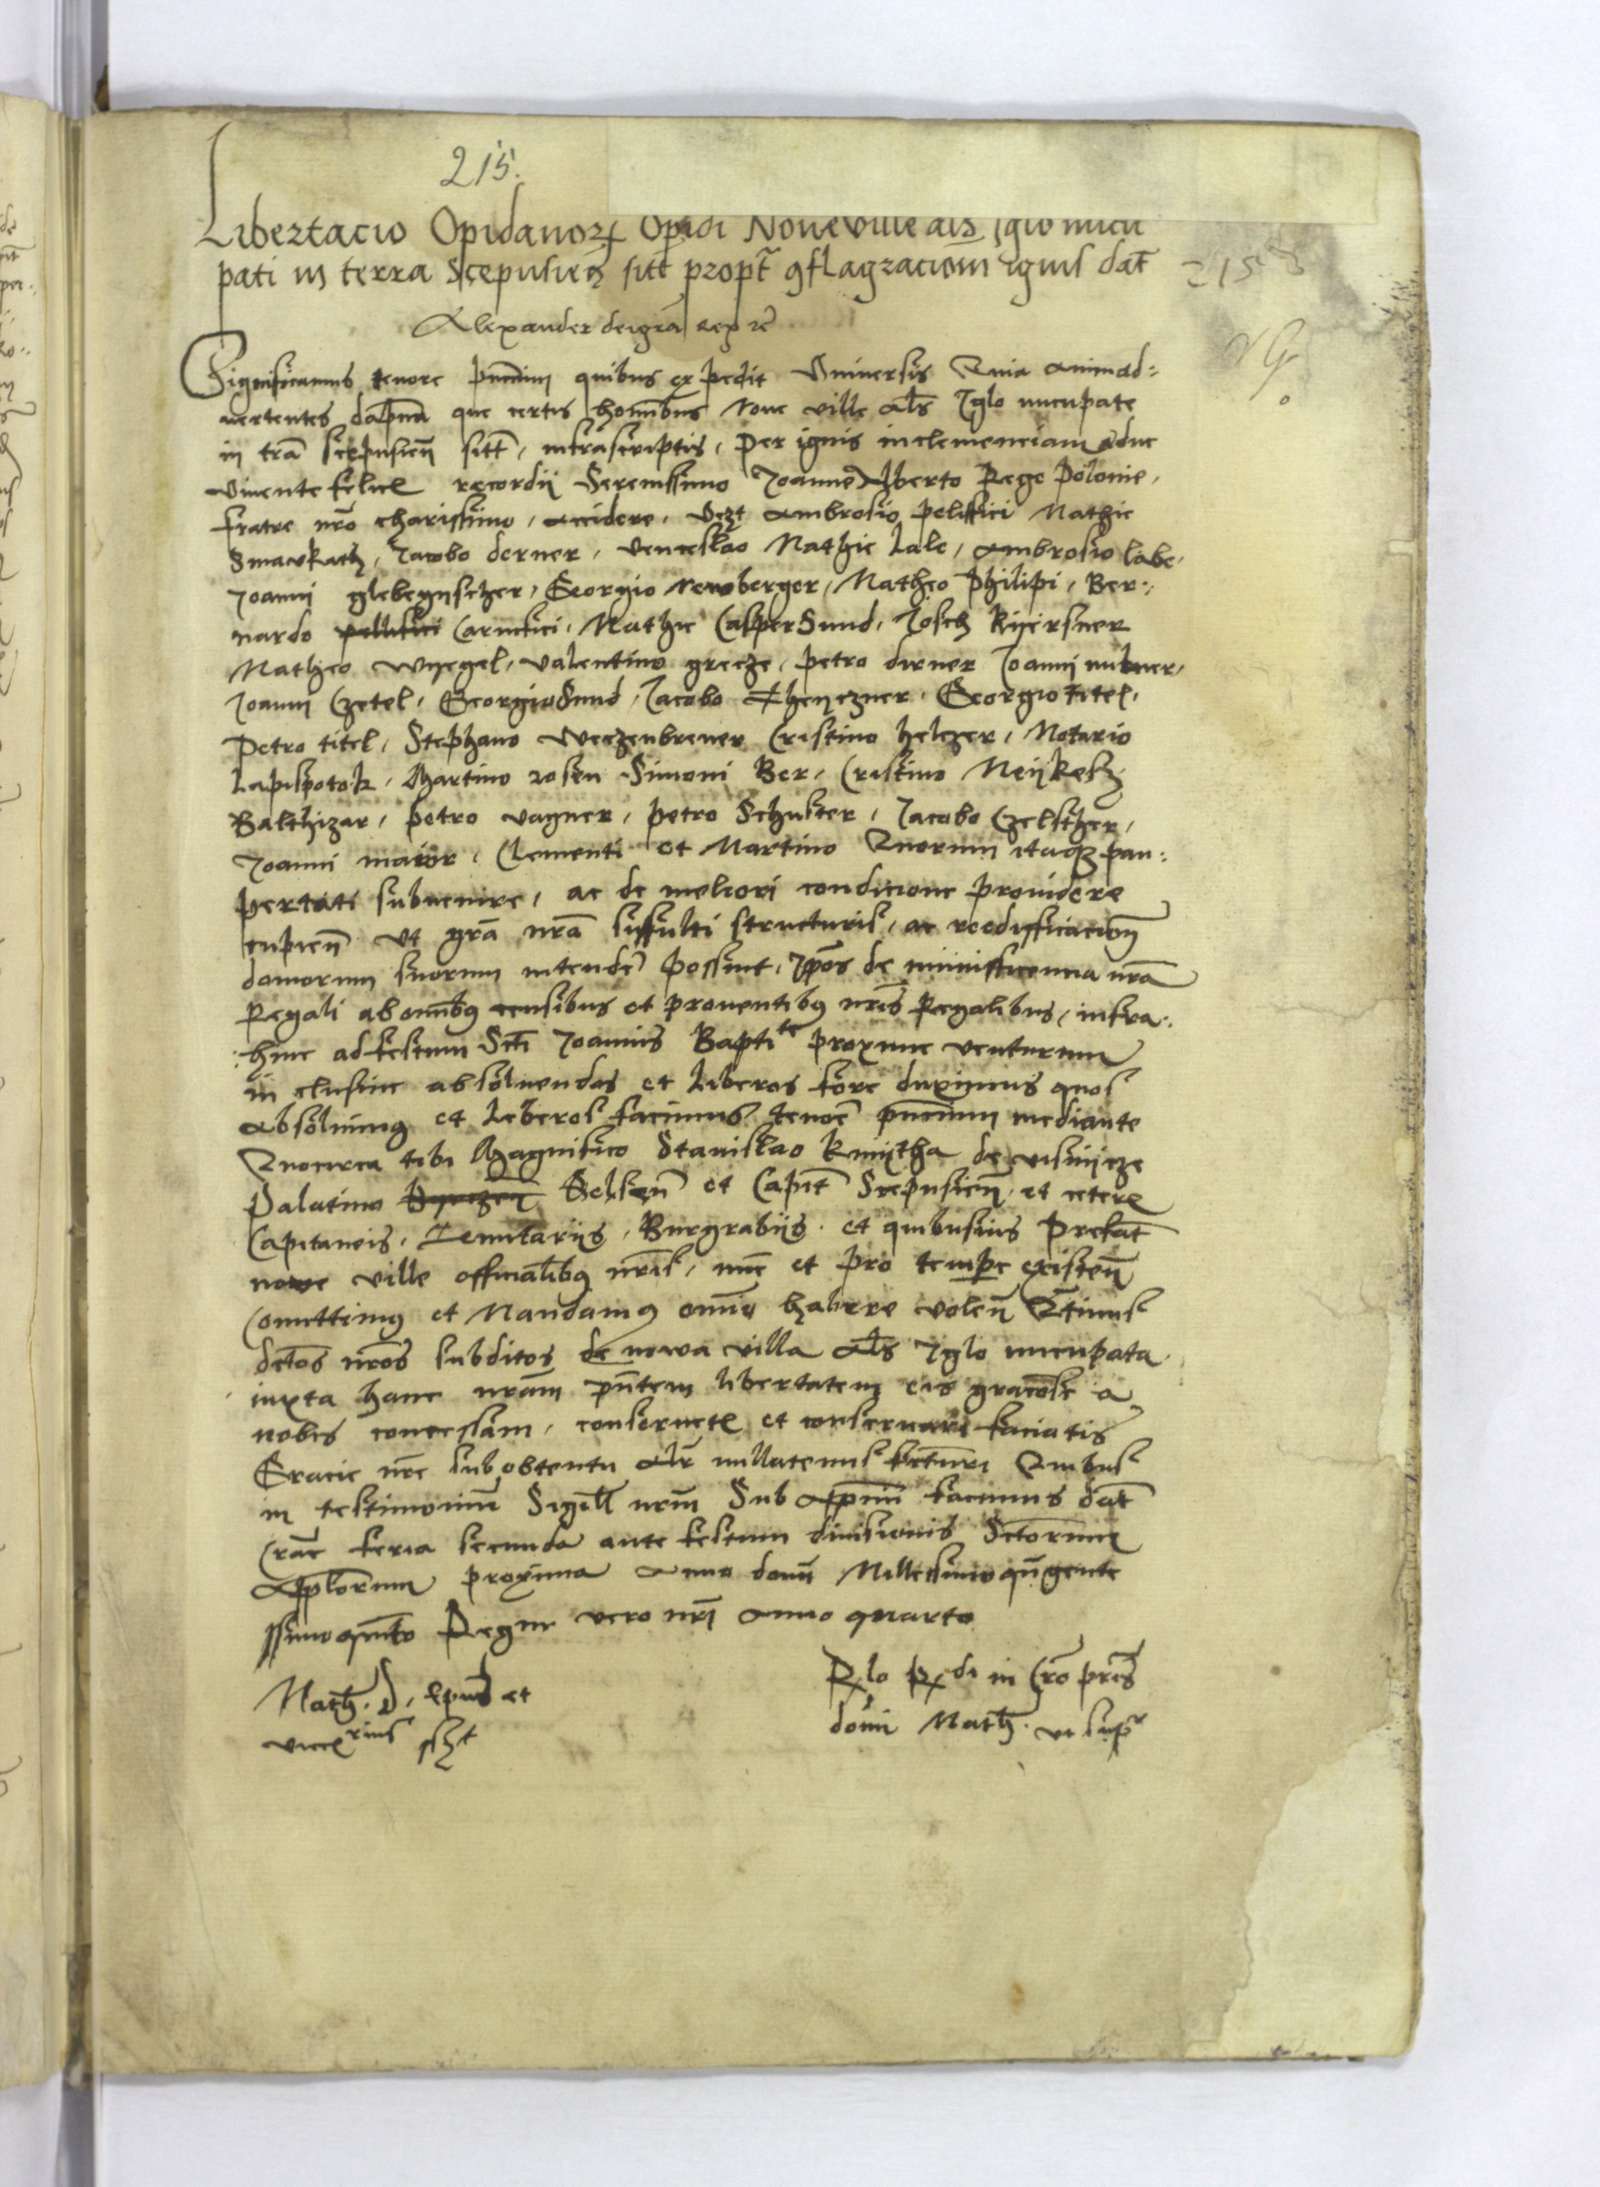 215.
Libertacio Opidanorꝝ Opidi Noueville als Iglo nucu
pati in terra Scepusien̄ sitt propt̄ ꝯflagracionem ignis dat̄
2158
Alexander dei gra rex rc̄
Significamus tenore pn̄cium quibus expedit Vniversis Quia animad:
vertentes dapna que certis hominibus Noue ville als Iglo nucupate
in tra scepusien̄ sitt, infrascriptis, per ignis inclemenciam aduc
viuente felicis recordij Serenissimo Joanne Alberto Rege Polonie,
fratre nro charissimo, accidere, vcȝt Ambrosio pellifici Mathie
Smawkath, Jacobo derner, venceslao Mathie Lale, Ambrosio labe,
Joanni glebegnsczer, Georgio newberger, Matheo Philipi, Ber:
nardo pellifici Carnifici, Mathie Casper Sund, Josch kijersner
Matheo Wyegel, valentino grecze, petro dirner Joanni
Joanni Czetel, Georgio Sund, Jacobo Georgio titel,
Petro titel, Stephano weczenbrener Cristino helczer, Notario
Lapispotok, Martino rosen Simoni Ber, Cristino Neijkesch
Balthizar, petro vagner, petro Schuster, Jacobo Czelscher,
Joanni maior, Clementi et Martino Quorum itaqȝ pau:
pertati subuenire, ac de meliori condicione prouidere
cupien̄ vt gra nra suffulti structuris, ac reedifficacion̄
domorum suorum intendē possint, Ip̄os de munifficencia nra
Regali ab om̄ibꝯ censibus et prouentibꝯ nris Regalibus, infra:
hinc ad festum Scti Joannis Baptiᵗᵉ proxime venturum
inclusiue absoluendos et liberos fore duximus quos
absoluimꝯ et leberos facimus tenorē pn̄cium mediante
Quocirca tibi Magnifico Stanislao kmijtha de visnijcze
Palatino Belzen̄ et Capit̄ Scepusien̄, et ceteris
Capitaneis, Tenutarijs, Burgrabijs, et quibusuis prefat̄
nowe ville officialibꝯ nris, nūc et pro tempe existen̄
Comittimꝯ et Mandamꝯ omnīo habere volen̄ Qtinus
dctos nros subditos de nowa villa als Iglo nucupata
iuxta hanc nram pn̄tem libertatem eis graciose a
nobis concessam, conseruetis et conseruari faciatis
Gracie nre sub obtentu Alr̄ nullatenus facturi Quibus
in testimonium Sigill nrm Sub appn̄ facimus dat̄
Crac̄ feria secunda ante festum diuisionis Sctorum
Apl̄orum proxima Anno domi Millesimo qn̄gente
ssimo qnto Regni vero nri anno quarto
Math. D, epus et
vicecᵃʳⁱᵘˢ sszt
Rlo Rᵈⁱ in Cro pris
domi Math. vt sup